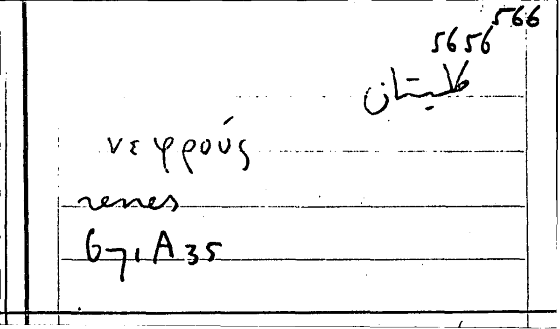 566
5656
كليتان
νεφρούς
renes
671A35